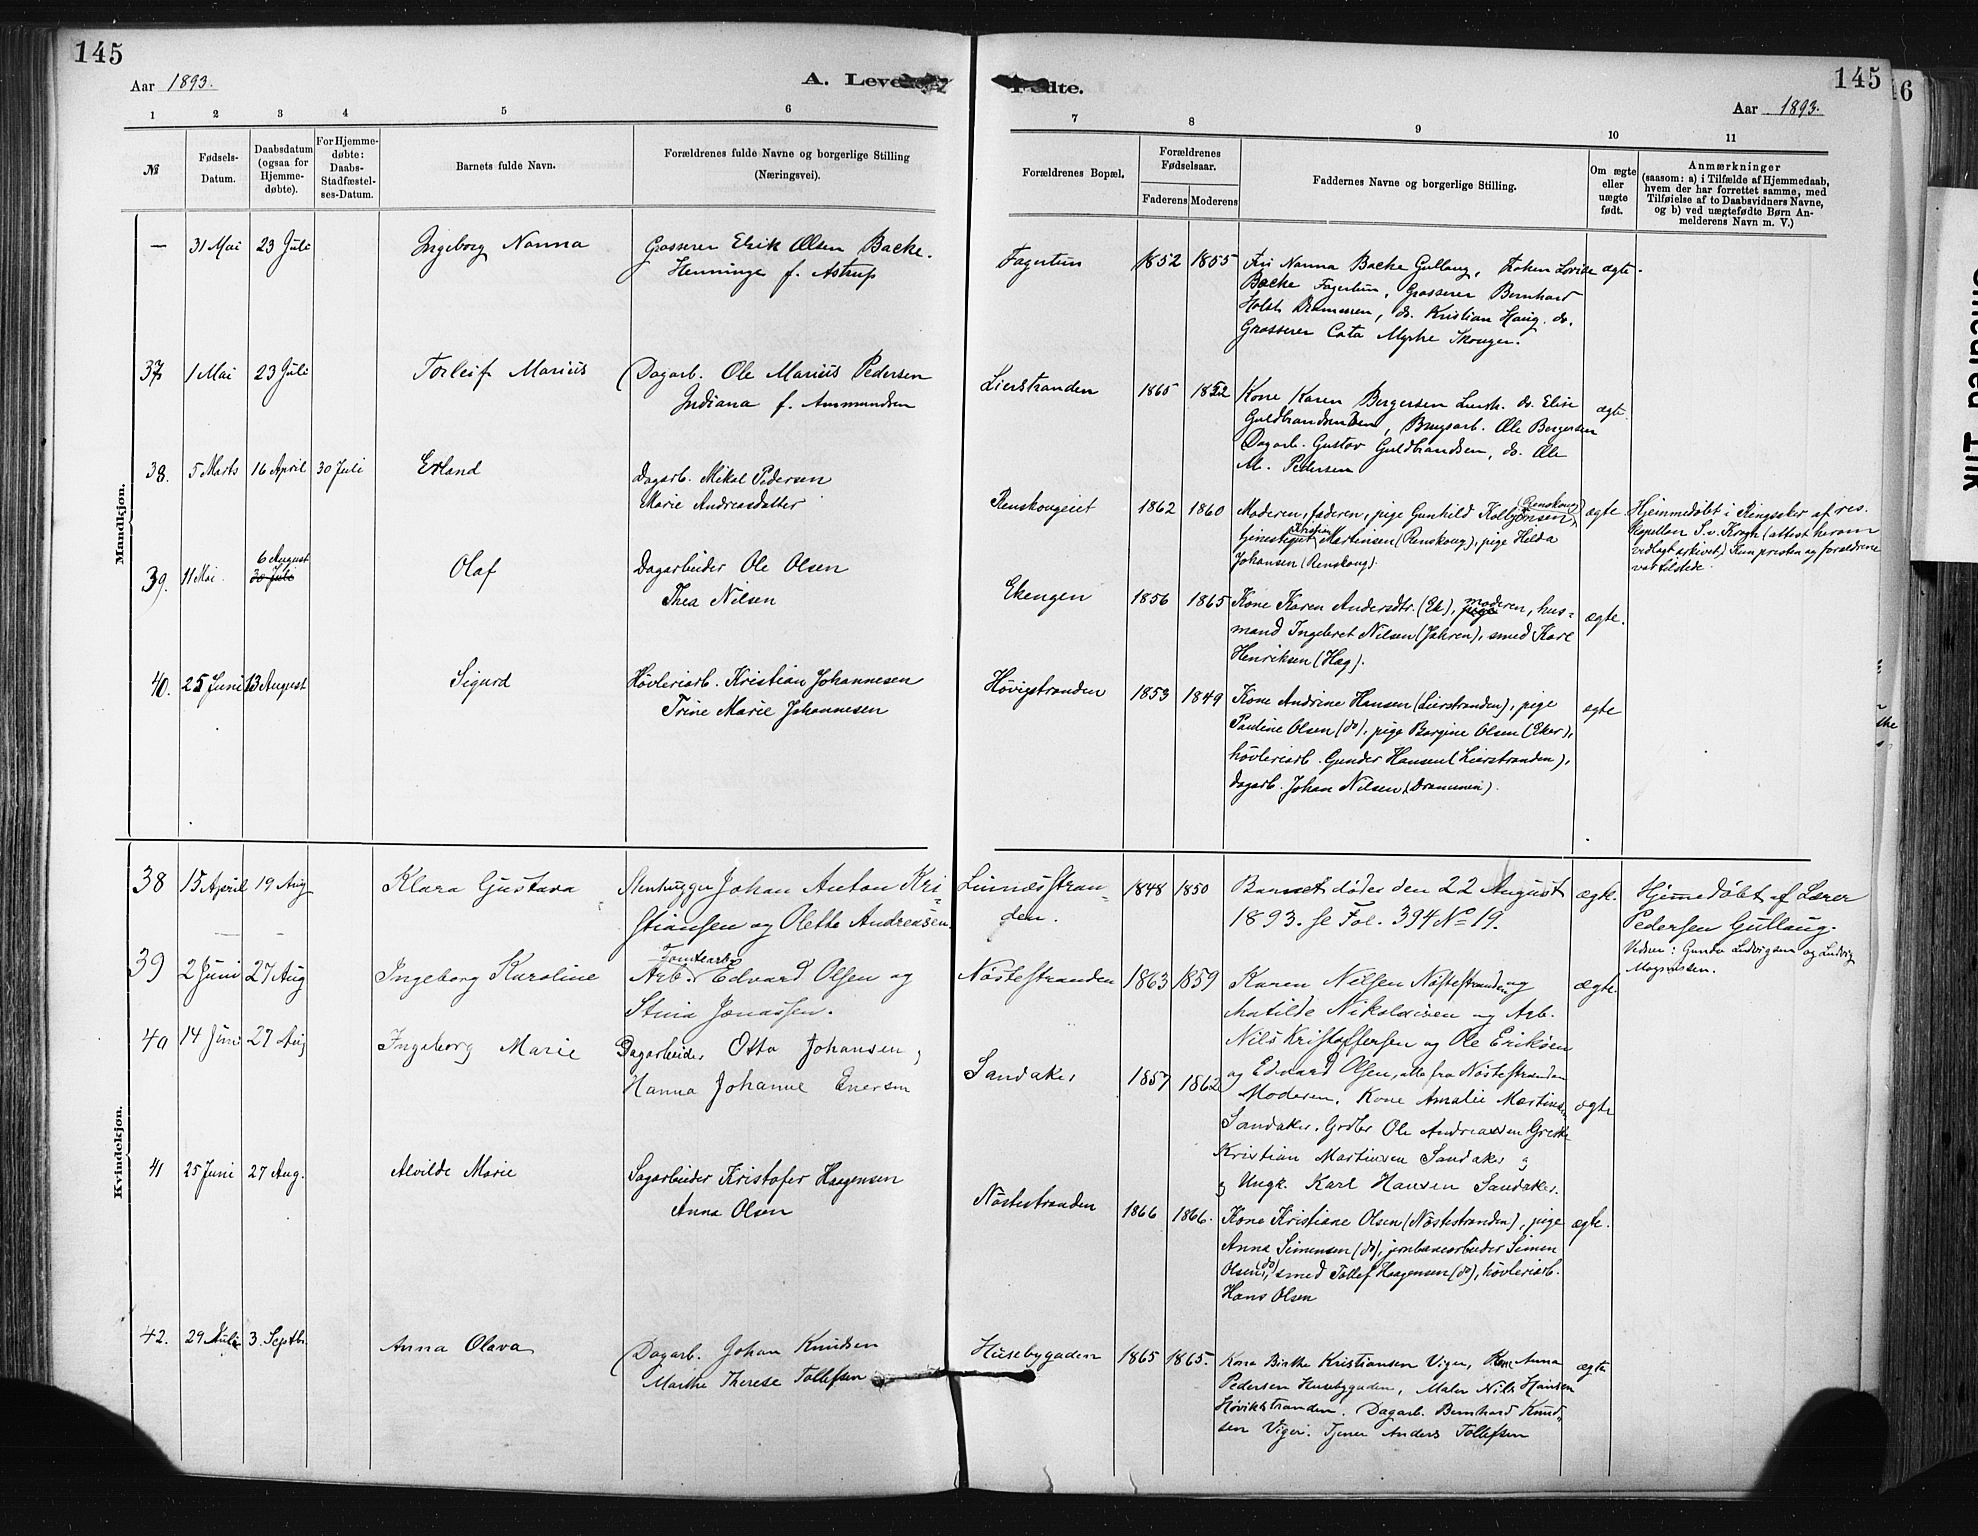 145
Aar 1893.
A. Levende
Fødte.
145
Aar 1893.
1 2 3 4 5 6
7 8 9 10 11
№
Fødsels-Datum.
Daabsdatum (ogsaa for Hjemmedøbte).
For Hjemmedøbte: Daabs-Stadfæstelses-Datum.
Barnets fulde Navn.
Forældrenes fulde Navne og borgerlige Stilling (Næringsvei).
Forældrenes Bopæl.
Forældrenes Fødselsaar.
Faderens Moderens
Faddernes Navne og borgerlige Stilling.
Om ægte eller uægte født.
Anmærkninger
(saasom: a) i Tilfælde af Hjemmedaab,
hvem der har forrettet samme, med
Tilføielse af to Daabsvidners Navne,
og b) ved uægtefødte Børn An-
melderens Navn m. V.)
Mandkjøn.
— 31 Mai 23 Juli Ingeborg Nanna
Grosserer Erik Olsen Backe.
Henninge f. Astrup
Fagertun 1852 1855
Fru Nanna Backe Gullaug, Frøken Lovise ægte.
Backe Fagertun, Grosserer Bernhard
Holst Drammen, do. Kristian Haug. do.
Grosserer Cato Myhre Skouger.
37 1 Mai 23 Juli Torleif Marius
Dagarb. Ole Marius Pedersen
Indiana f. Ammundsen
Lierstranden 1865 1852
Kone Karen Bergersen Lierstr. do. Elise
Guldbrandsen, Brugsarb. Ole Bergersen ægte.
Dagarb. Gustav Guldbrandsen, do. Ole
M. Pedersen
38. 5 Marts 16 April 30 Juli Erland
Dagarb. Mikal Pedersen
Marie Andreasdatter
Renskougeiet 1862 1860
Moderen, faderen, pige Gunhild Kolbjønsen (Renskoug), ægte
tjenestegut Kristian Martinsen (Renskoug), pige Hilda
Johansen (Renskoug).
Hjemmedøbt i Ringsaker af res.
Kapellan S. v. Krogh (attest herom
vedlagt arkivet) Kun presten og forældrene
var tilstede.
39. 11 Mai. 6 August
30 Juli
Olaf
Dagarbeider Ole Olsen
Thea Nilsen
Ekengen 1856 1865
Kone Karen Andersdtr. (Ek), pige moderen, hus-
mand Ingebret Nilsen (Jahren), smed Karl ægte.
Henriksen (Hag).
40. 25 Juni 13 August Sigurd
Høvleriarb. Kristian Johannesen
Trine Marie Johannesen
Høvigstranden 1853 1849
Kone Andrine Hansen (Lierstranden), pige ægte
Pauline Olsen (do), pige Bargine Olsen (Eker),
høvleriarb. Gunder Hansen (Lierstranden),
dagarb. Johan Nilsen (Drammen).
Kvindekjøn.
38 15 April 19 Aug Klara Gustava
Stenhugger Johan Anton Kri-
stiansen og Olette Andreasen.
Linnesstran-
den.
1848 1850
Barnet døde den 22 August ægte.
1893. se Fol. 394 No 19.
Hjemmedøbt af Lærer
Pedersen Gullaug.
Vidner: Gunda Ludvigsen og Ludvig
Magnussen.
39 2 Juni 27 Aug Ingeborg Karoline
Tomtearb.
Arb. Edvard Olsen og
Stina Jonassen.
Nøstestranden 1863 1859
Karen Nilsen Nøstestranden og ægte.
Matilde Nikolaisen og Arb.
Nils Kristoffersen og Ole Eriksen
og Edvard Olsen, alle fra Nøstestranden
40 14 Juni 27 Aug Ingeborg Marie
Dagarbeider Otto Johansen,
Hanna Johanne Enersen
Sandaker 1857 1862
Moderen, Kone Amalie Martinsen ægte
Sandaker, Grdbr Ole Andreassen
Kristian Martinsen Sandaker og
og Ungk. Karl Hansen Sandaker.
41 25 Juni 27 Aug. Alvilde Marie
Sagarbeider Kristofer Haagensen
Anna Olsen
Nøstestranden 1866 1866.
Kone Kristiane Olsen (Nøstestranden), pige ægte.
Anna Simensen (do), jernbanearbeider Simen
Olsen (do), smed Tollef Haagensen (do), høvleriarb.
Hans Olsen
42. 29 Juli 3 Septbr Anna Olava
Dagarb. Johan Knudsen
Marthe Therese Tollefsen
Husebygaden 1865 1865.
Kone Birthe Kristiansen Viger, Kone Anna ægte
Pedersen Husebygaden, Maler Nils Hansen
Høvikstranden. Dagarb. Bernhard Knud-
sen Viger. Tjener Anders Tollefsen